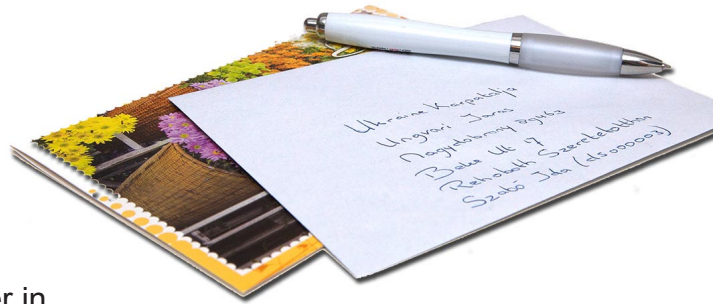 Ukraine Karpatalja
Ungvari Jaras
Nagydobrony 89463
Beke Ut 17
Rehoboth Szeretetotthon
Szabó Ida (ds000003)
er in